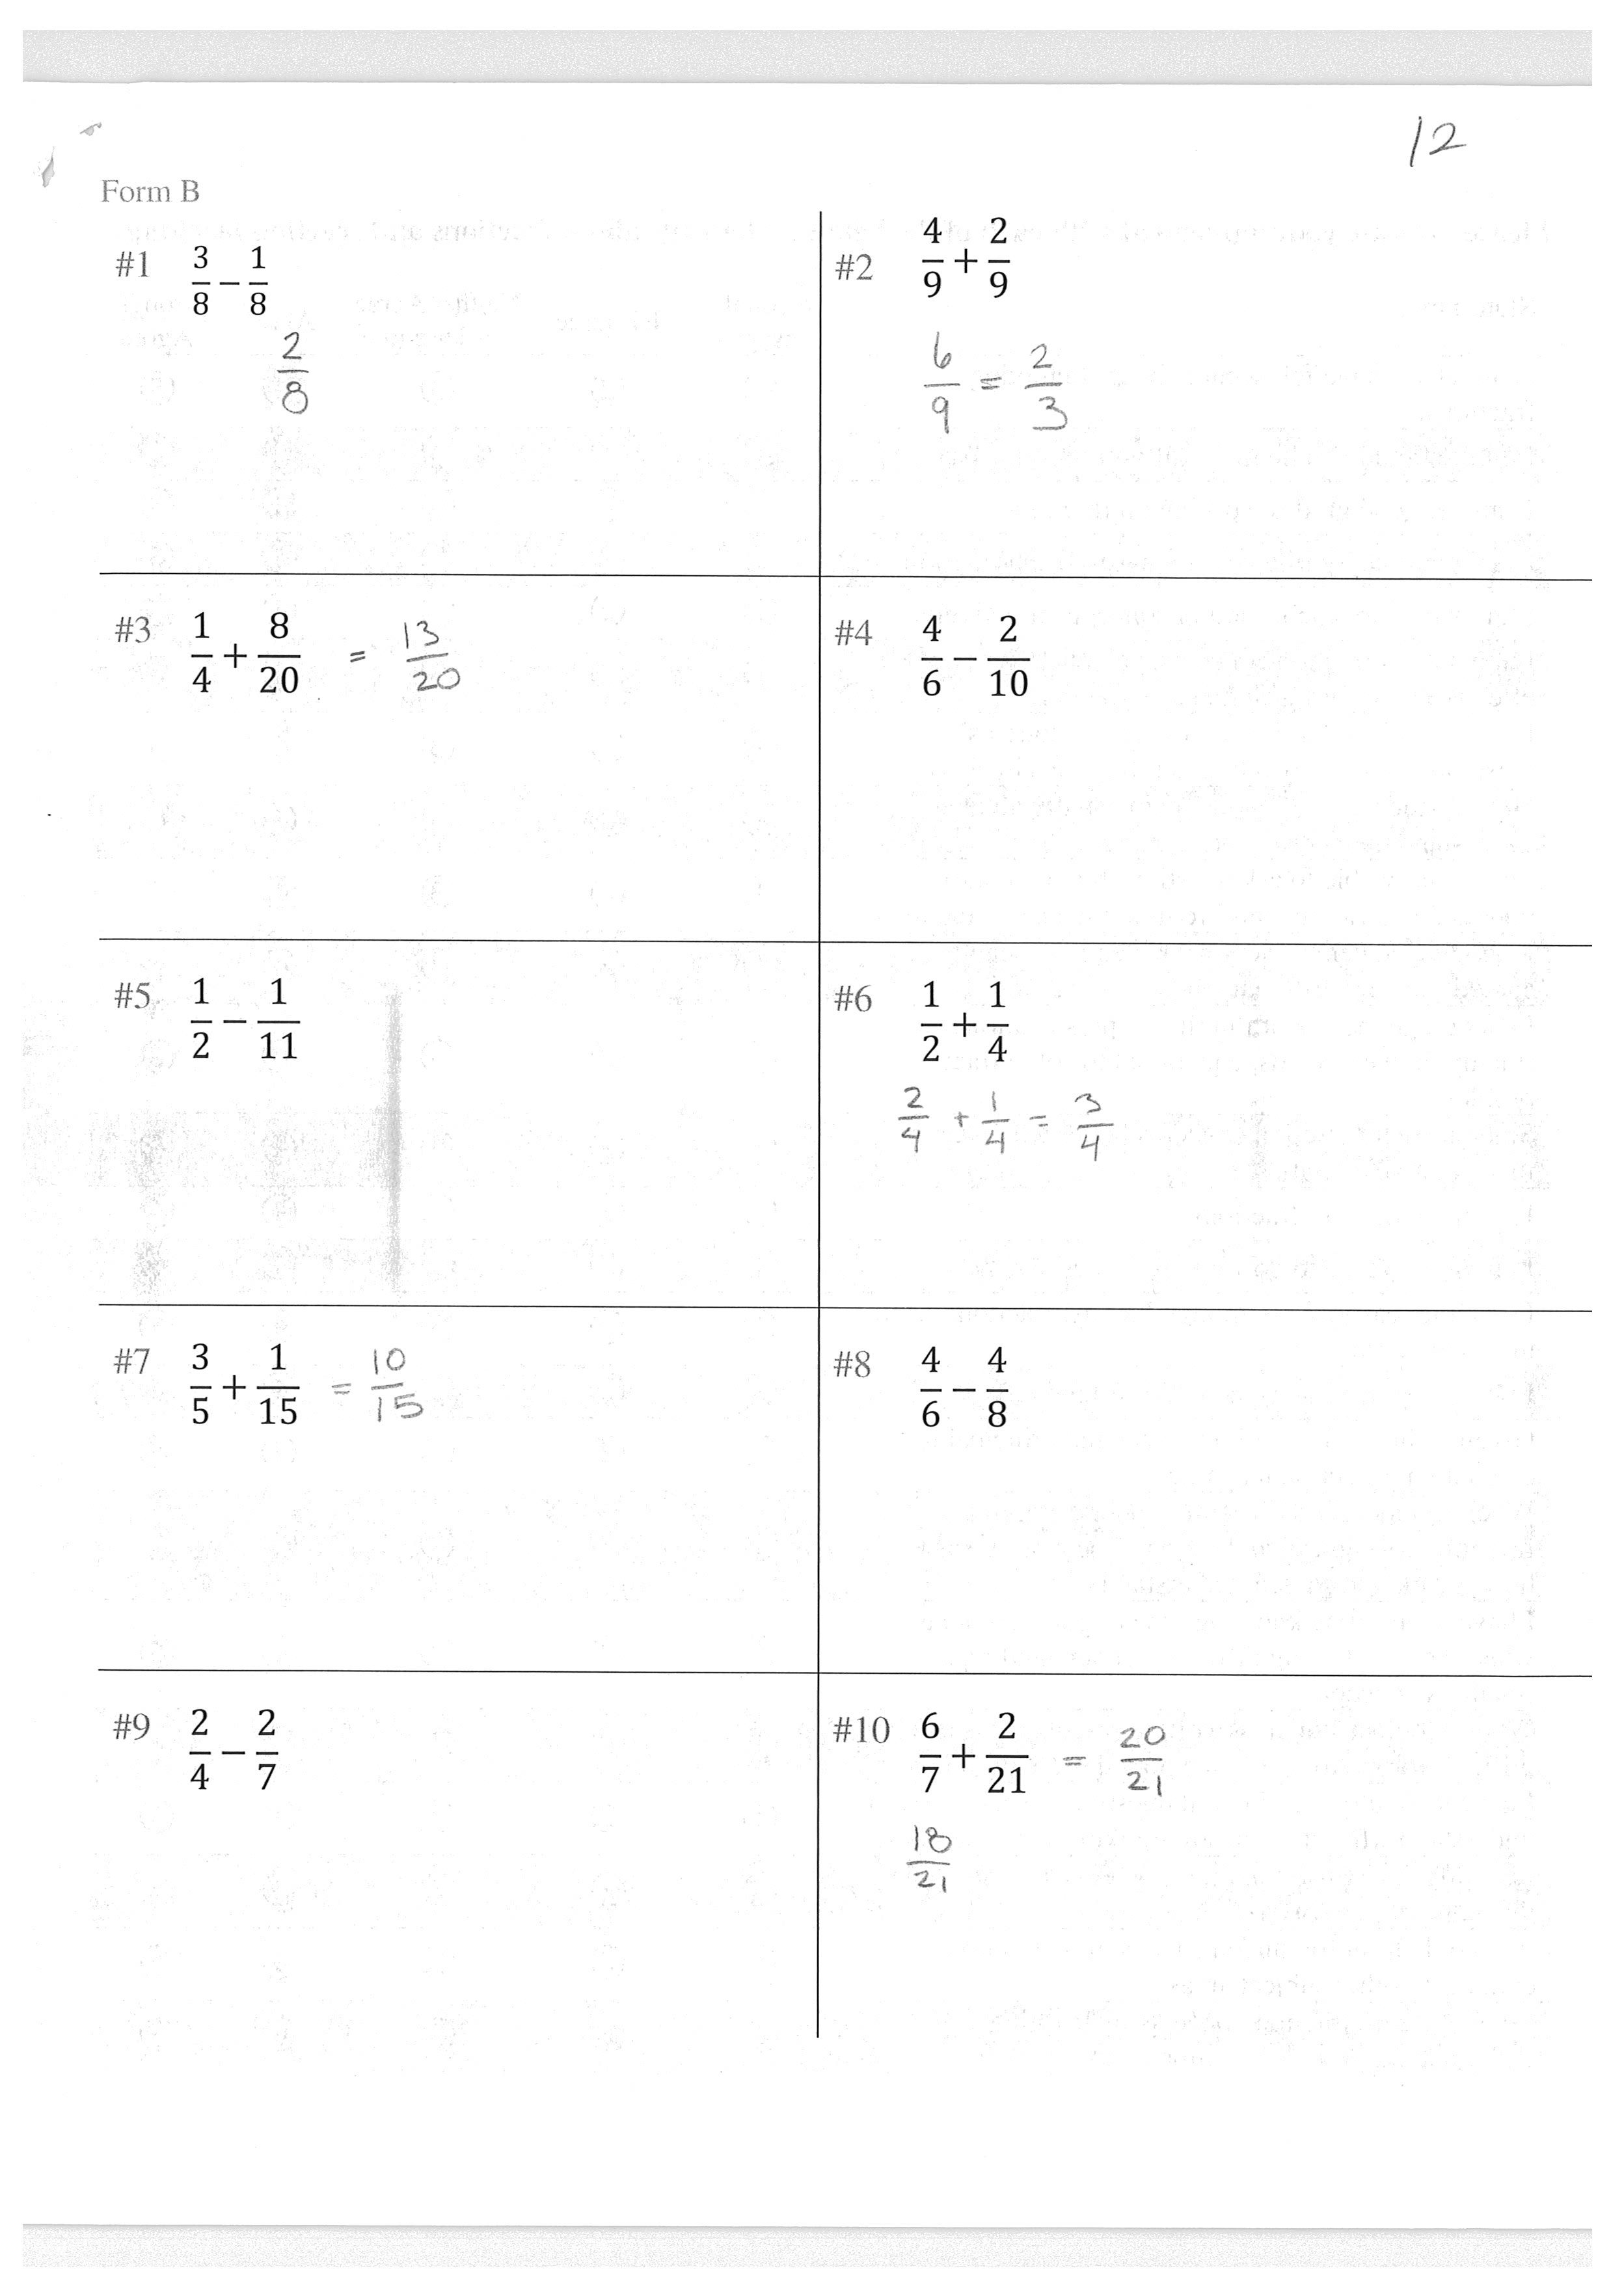 12
Form B
#1 3/8 − 1/8
2/8
#2 4/9 + 2/9
6/9 = 2/3
#3 1/4 + 8/20 = 13/20
#4 4/6 − 2/10
#5 1/2 − 1/11
#6 1/2 + 1/4
2/4 + 1/4 = 3/4
#7 3/5 + 1/15 = 10/15
#8 4/6 − 4/8
#9 2/4 − 2/7
#10 6/7 + 2/21 = 20/21
18/21